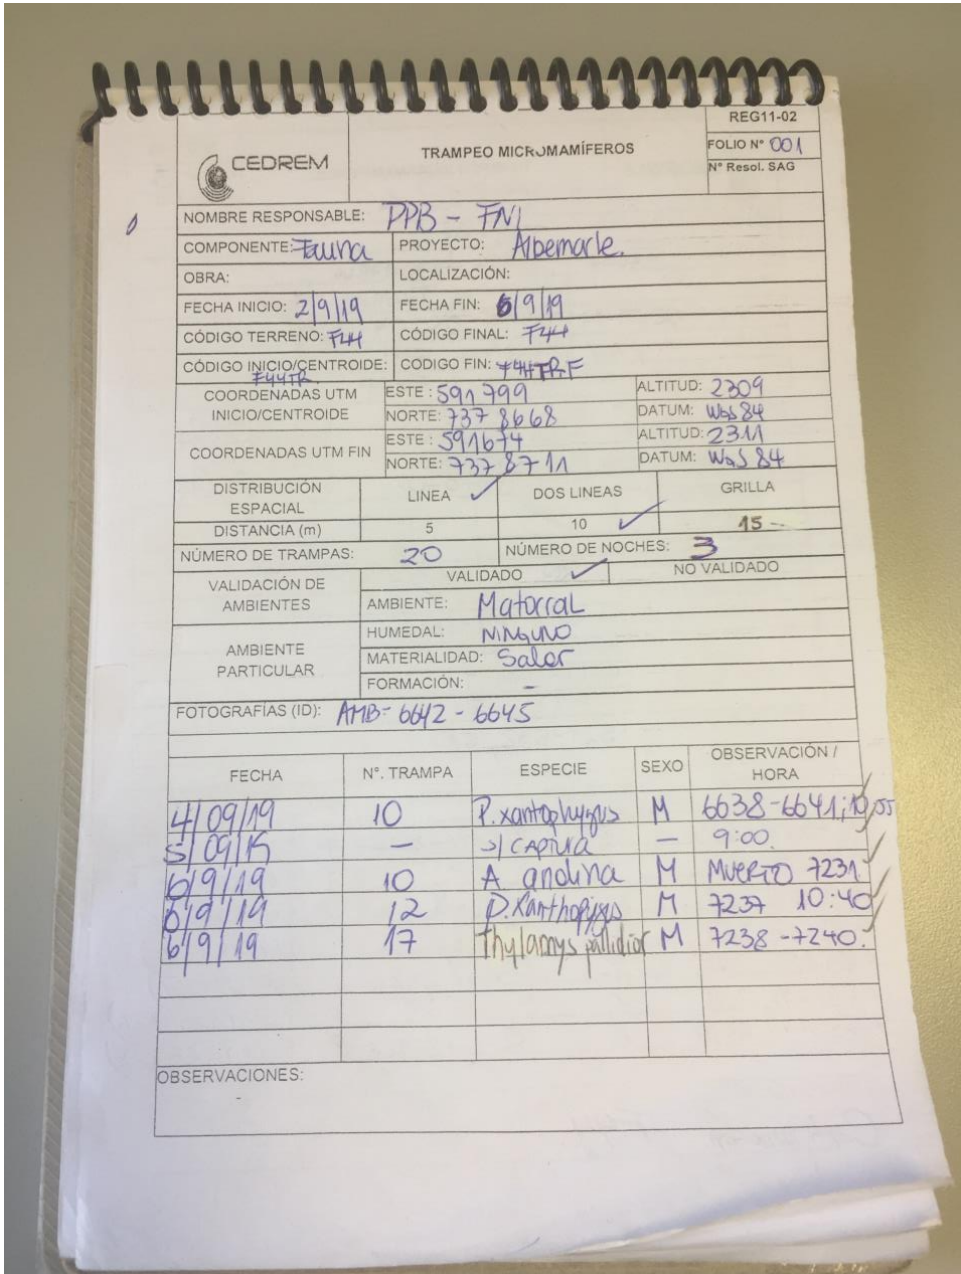 REG11-02
CEDREM
TRAMPEO MICROMAMÍFEROS
FOLIO N° 001
N° Resol. SAG
NOMBRE RESPONSABLE: PPB - FNI
COMPONENTE: Fauna PROYECTO: Albemarle.
OBRA: LOCALIZACIÓN:
FECHA INICIO: 2/9/19 FECHA FIN: 6/9/19
CÓDIGO TERRENO: F44 CÓDIGO FINAL: F44
CÓDIGO INICIO/CENTROIDE: F44TR CODIGO FIN: F44TRF
COORDENADAS UTM INICIO/CENTROIDE ESTE: 591799 ALTITUD: 2309
NORTE: 737 8668 DATUM: WGS 84
COORDENADAS UTM FIN ESTE: 591674 ALTITUD: 2311
NORTE: 737 8711 DATUM: WGS 84
DISTRIBUCIÓN ESPACIAL LINEA ✓ DOS LINEAS GRILLA
DISTANCIA (m) 5 10 ✓ 15
NÚMERO DE TRAMPAS: 20 NÚMERO DE NOCHES: 3
VALIDACIÓN DE AMBIENTES VALIDADO ✓ NO VALIDADO
AMBIENTE: Matorral
AMBIENTE PARTICULAR HUMEDAL: NINGUNO
MATERIALIDAD: Salar
FORMACIÓN: -
FOTOGRAFÍAS (ID): AMB- 6642 - 6645
FECHA N°. TRAMPA ESPECIE SEXO OBSERVACIÓN / HORA
4/09/19 10 P. xantophygus M 6638-6641; 10,55
5/09/19 - s/ CAPTURA - 9:00.
6/9/19 10 A andina M MUERTO 7231
6/9/19 12 P. Xanthopygus M 7237 10:40
6/9/19 17 Thylamys pallidior M 7238 - 7240.
OBSERVACIONES:
-